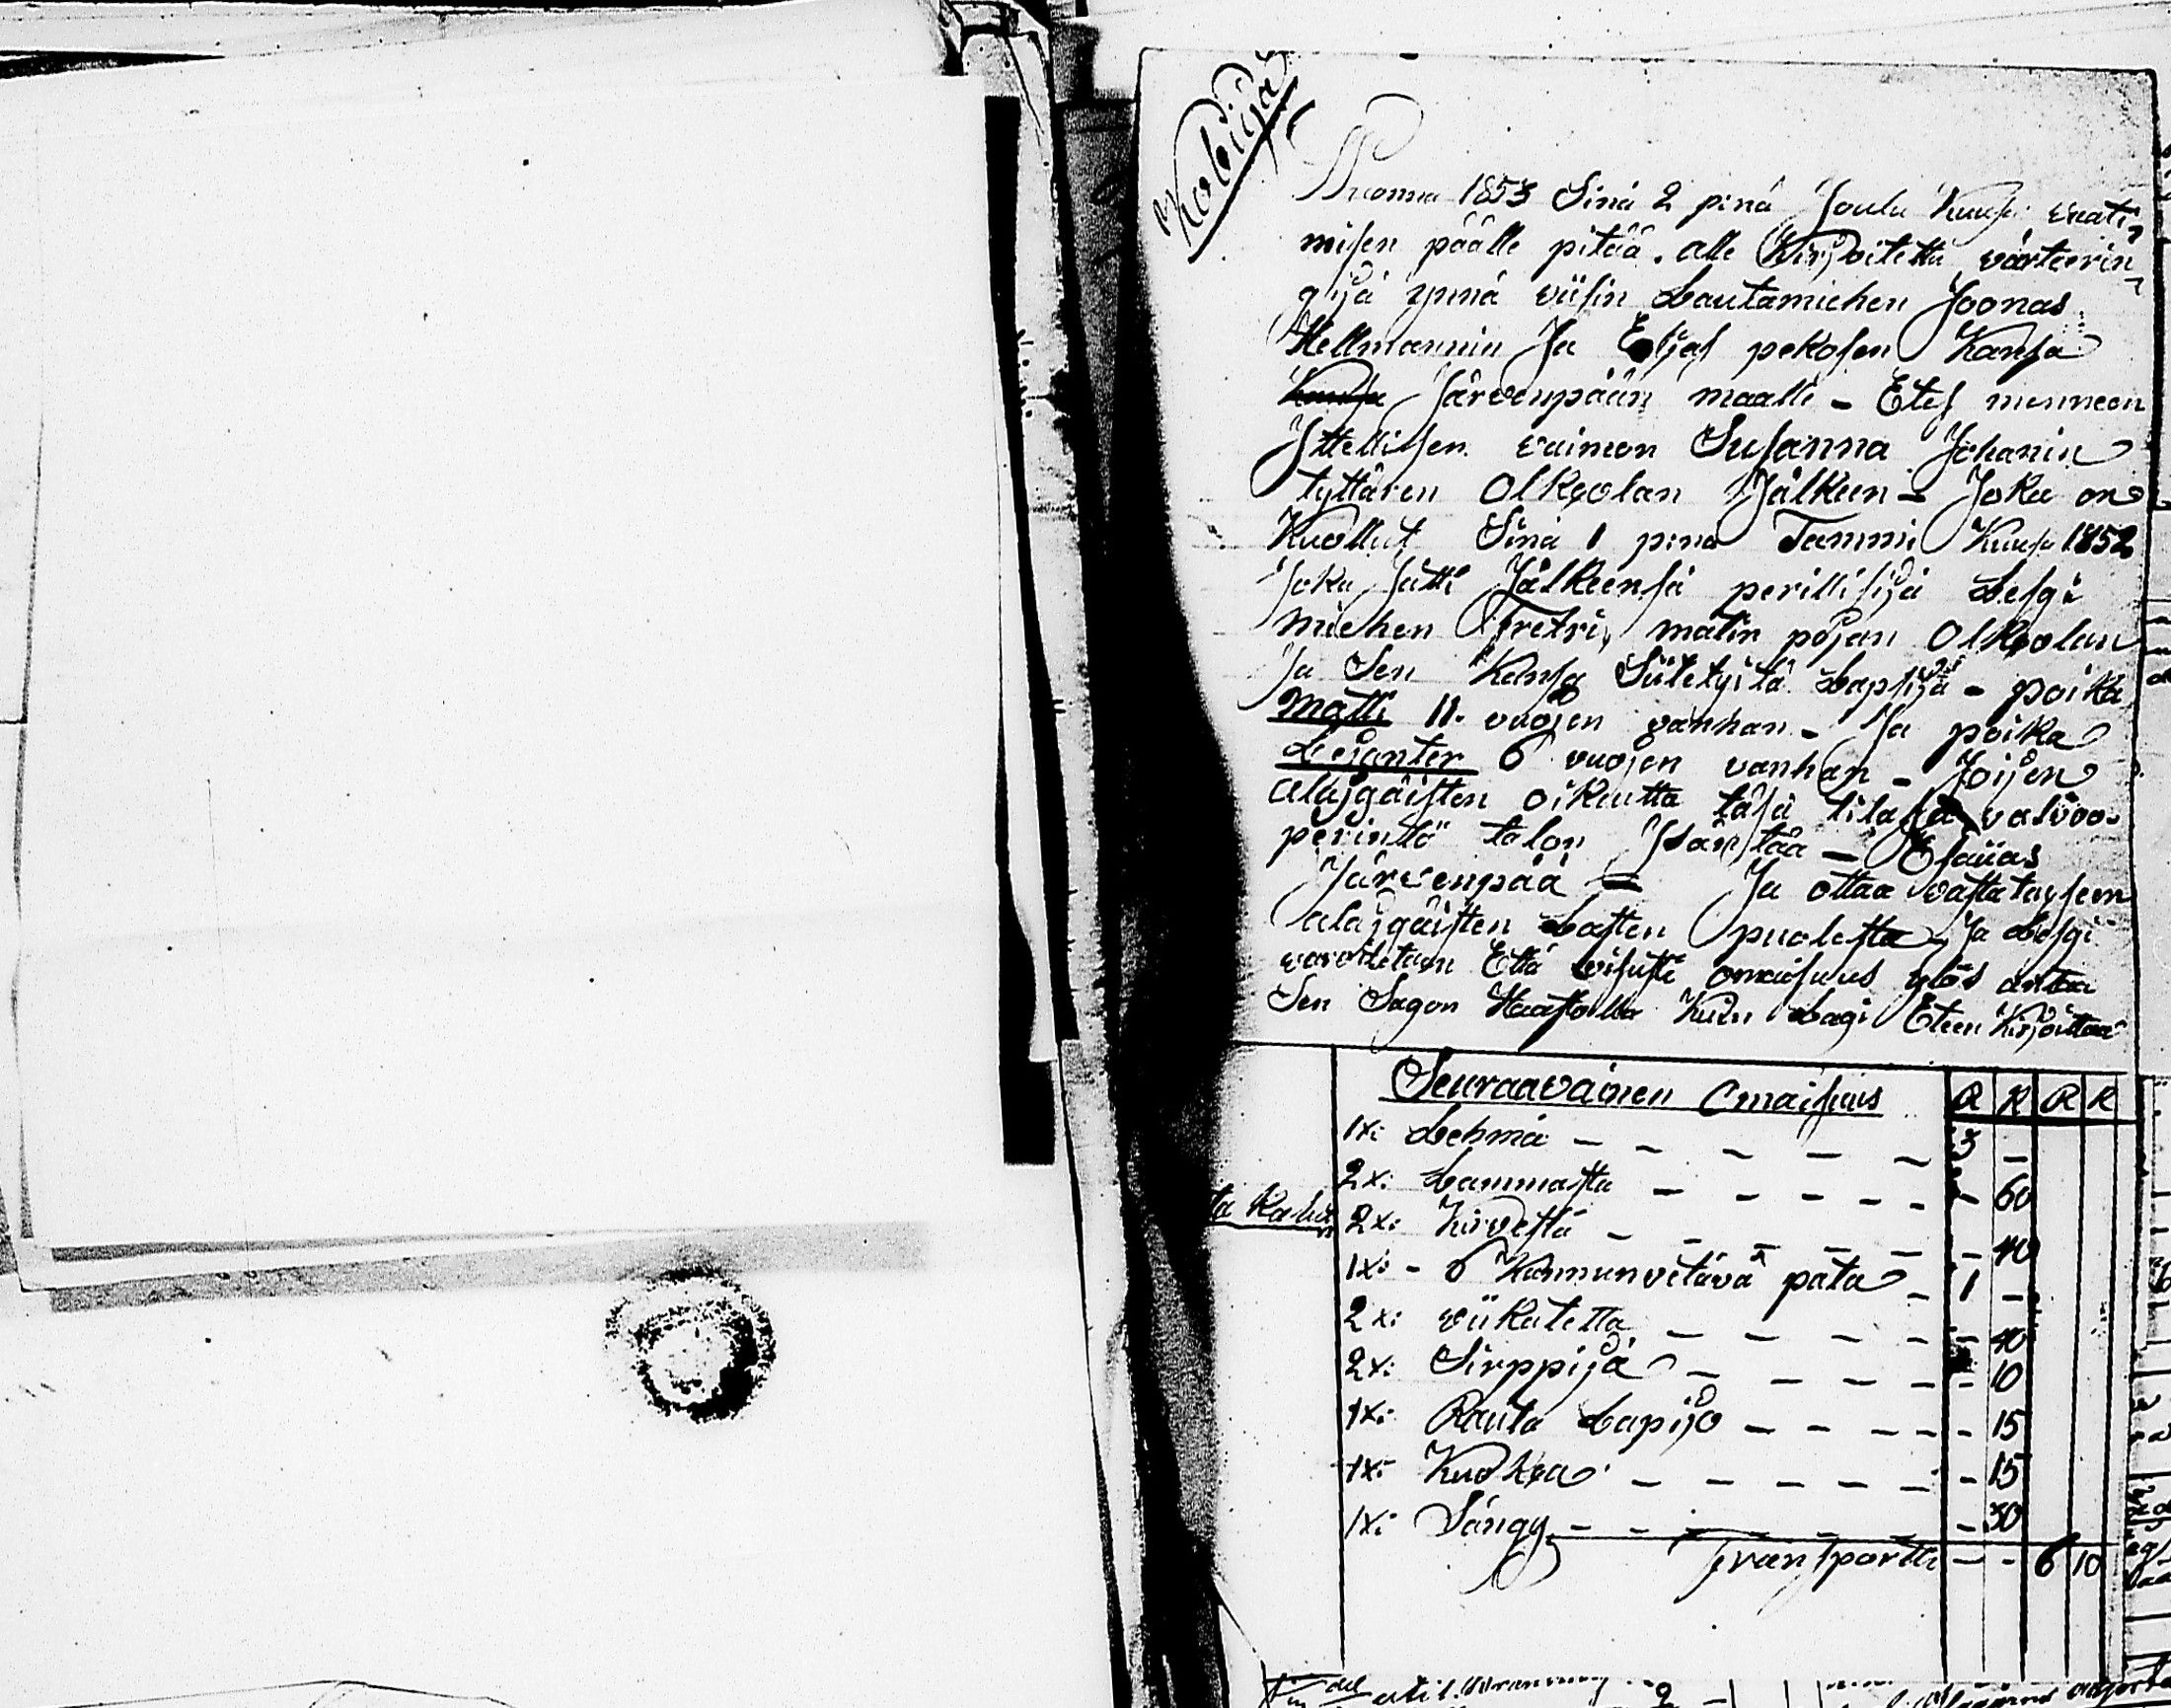 Kobija
Wuonna 1853 Sinä 2 p:nä Joulu Kuusa vaati,
misen päälle pitää. alle Kirjoitettu värteerin
gijä ynnä viisin Lautamiehen Joonas
Hellmannin Ja Eljas pekosen Kansa
Kansa Järvenpään maalle - Etes menneen
Ittellisen vaimon Susanna Johanin
tyttären Olkqolan Jälkeen - Joka on
Kuollut Sinä 1 p:nä Tammi Kuusa 1852
Joka Jätti Jälkeensä perillisijä Lesgi
miehen Fretri, matin pojan Olkqolan
Ja Sen Kansa Siitetyitä Lapsija - poika
Matti 11. vuojen vanhan - Ja poika
Lesanter 6 vuojen vanhan - Joijen
alajgäisten oikeutta täsä tilasa valvoo
perintö talon Isäntää - Esaias
Järvenpää - Ja ottaa vastataysen
alajgäisten Lasten puolesta Ja Lesgi
varoitetaan Että visusti omaisuus ylös antaa
Sen Sagon Haastolla Kuin Lagi Eteen Kirjoittaa
Seuraavainen Omaisuus R K R K
1x: Lehmä - - - - - 3 -
2x: Lammasta - - - - - - 60
ta Kalua
2x: Kirvestä - - - - - - 40
1x: - 6 Kannunvetävä pata - 1 -
2x: viikatetta - - - - - 40
2x: Sirppijä - - - - - - 10
1x: Rauta Lapijo - - - - - 15
1x: Kuokqa - - - - - - 15
1x: Sängy - - - - - - 30
Transportti - - 6 10